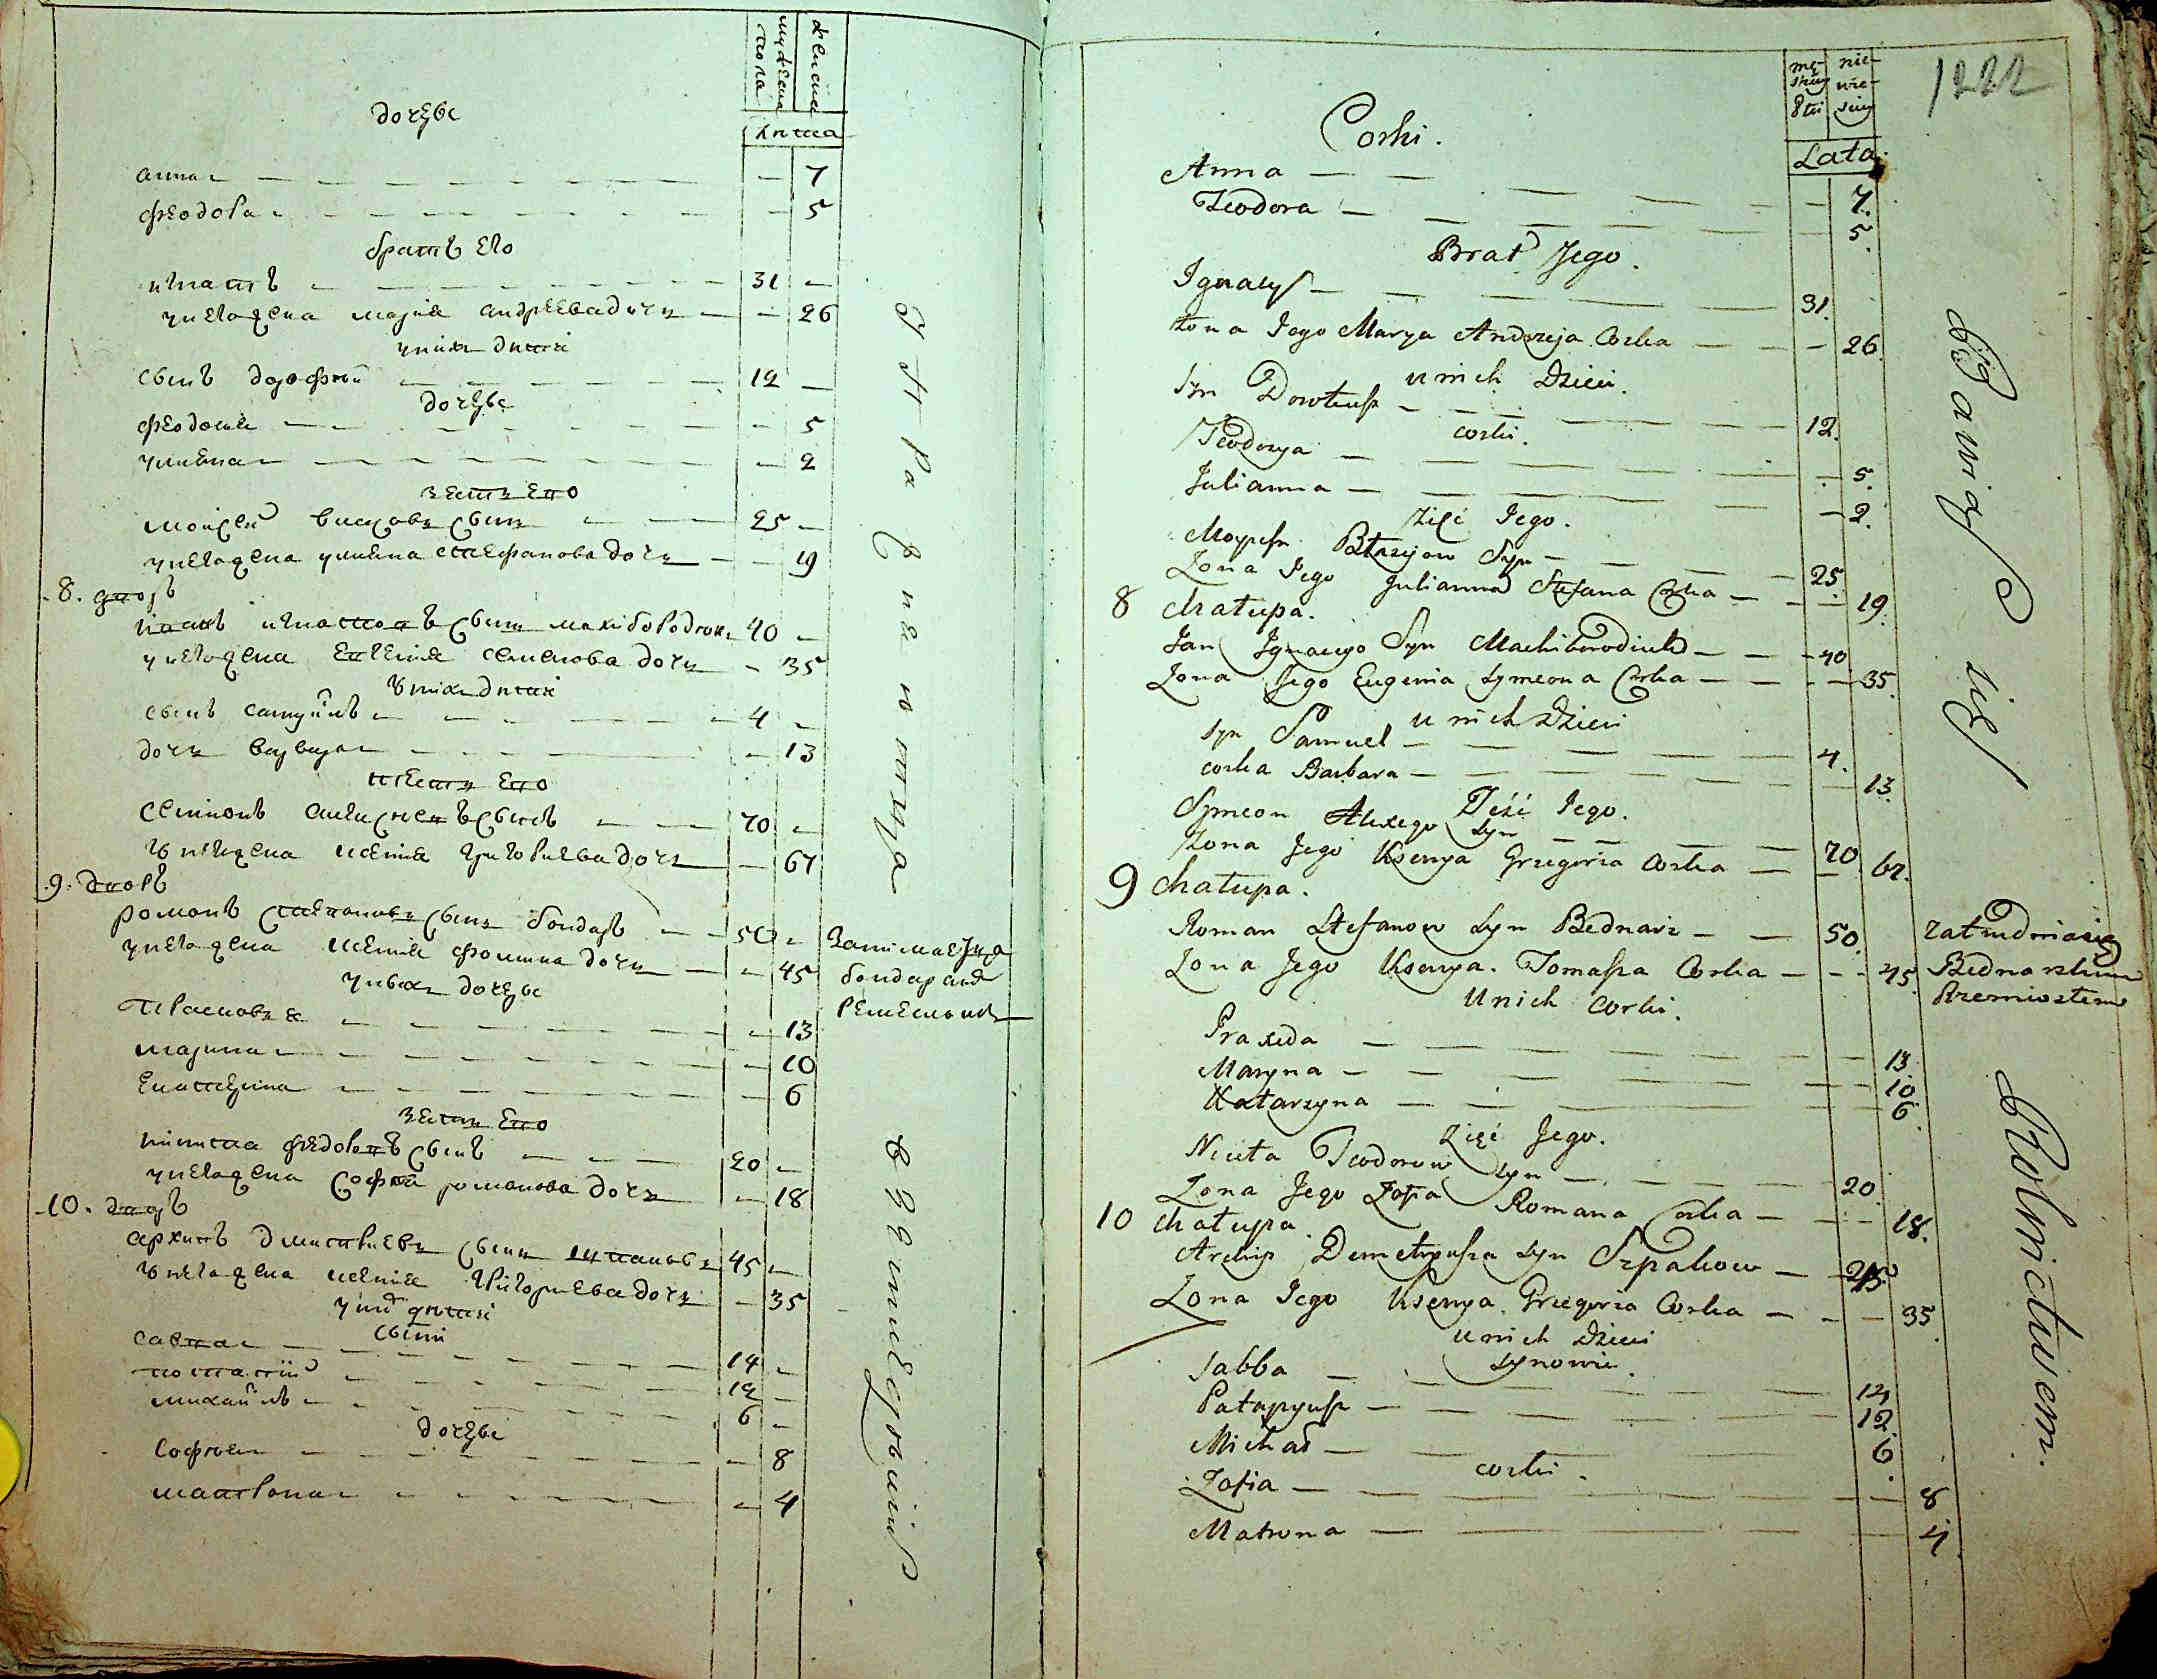 мужеска пола
женска
лѣта
дочери
анна — 7
феодора — 5
братъ его
игнатъ 31 —
у него жена марія андреева дочь — 26
у нихъ дѣти
сынъ дорофей 12 —
дочери
феодосия — 5
улиана — 2
зять его
моисей сынъ 25 —
у него жена улиана стефанова дочь — 19
8. дворъ
игнатовъ сынъ 40 —
у него жена евгения семенова дочь — 35
у нихъ дѣти
сынъ самуилъ 4 —
дочь варвара — 13
тесть его
семионъ сынъ 70 —
у него жена ксения григориева дочь — 67
9. дворъ
романъ стефановъ сынъ бондарь 50 —
у него жена ксения фомина дочь — 45
у нихъ дочери
— 13
марина — 10
екатерина — 6
зять его
никита федоровъ сынъ 20 —
у него жена софия романова дочь — 18
10. дворъ
архипъ дмитриевъ сынъ 45 —
у него жена ксения григориева дочь — 35
у нихъ дѣти
сыны
савва 14 —
потапий 12 —
михаилъ 6 —
дочери
софия — 8
матрона — 4
упражняются
занимается
бондарския
ремесломъ
1222
męskiey płci
niewieściey
Lata
Corki.
Anna — 7.
Teodora — 5.
Brat Jego.
Ignacy — 31.
Żona Jego Marya Andrzeja Corka — 26.
u nich Dzieci.
Syn Doroteusz — 12.
corki.
Teodozya — 5.
Julianna — 2.
zięć Jego.
Moyżesz Syn — 25.
Żona Jego Julianna Stefana Corka — 19.
8 chałupa.
Jan Ignacego Syn Machiborodiuk — 40
Żona Jego Eugenia Symeona Corka — 35.
u nich Dzieci
syn Samuel — 4.
corka Barbara — 13.
Teść Jego.
Symeon Alexego syn — 70
Żona Jego Ksenya Grzegorza Corka — 67.
9 chałupa.
Roman Stefanow Syn Bednarz — 50.
Żona Jego Ksenya Tomasza Corka — 45.
U nich corki.
Praxeda — 13.
Maryna — 10.
Katarzyna — 6.
zięć Jego.
Nikita Teodorow syn — 20.
Żona Jego Zofia Romana Corka — 18.
10 chałupa.
Archip Demetryusza syn Szpakow — 45.
Żona Jego Ksenya Grzegorza Corka — 35.
u nich Dzieci
synowie.
Sabba — 14
Patapyusz — 12.
Michał — 6.
corki.
Zofia — 8
Matrona — 4.
zatrudnia się
Bednarskim
Rzemiosłem
Bawią się Rolnictwem.